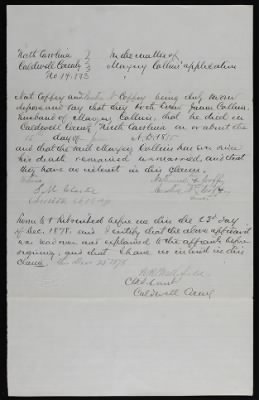 North Carolina
Caldwell County
No 14.173
In the matter of
Mayry Collins application
Nat Coffey and Coffey being duly sworn
depose and say that they both knew Collins.
Husband of Mayry Collins, that he died in
Caldwell County North Carolina on or about the
15 day of A.D. 18
and that the said Mayry Collins has ever since
his death remained unmarried, and that
they have no interest in this claim.
Coffey
Coffey
Sworn to & subscribed before me this the 23d day
of Dec. 1878. and I certify that the above affidavit
was read over and explained to the affiants before
signing, and that I have no interest in this
claim. Dec 23 1878
Clk Sup Court
Caldwell County